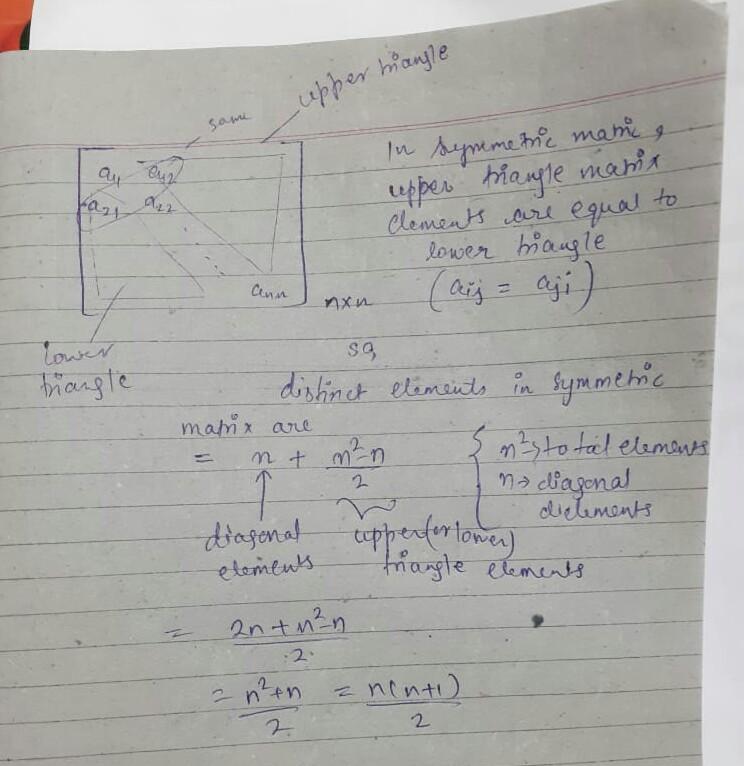 upper triangle
same
a11 a12
a21 a22
ann
n×n
lower
triangle
In symmetric matric,
upper triangle matrix
elements are equal to
lower triangle
(aij = aji)
so,
distinct elements in symmetric
matrix are
= n + n²-n/2
{ n²→total elements
n→diagonal
elements
diagonal
elements
upper(or lower)
triangle elements
= 2n+n²-n/2
= n²+n/2 = n(n+1)/2